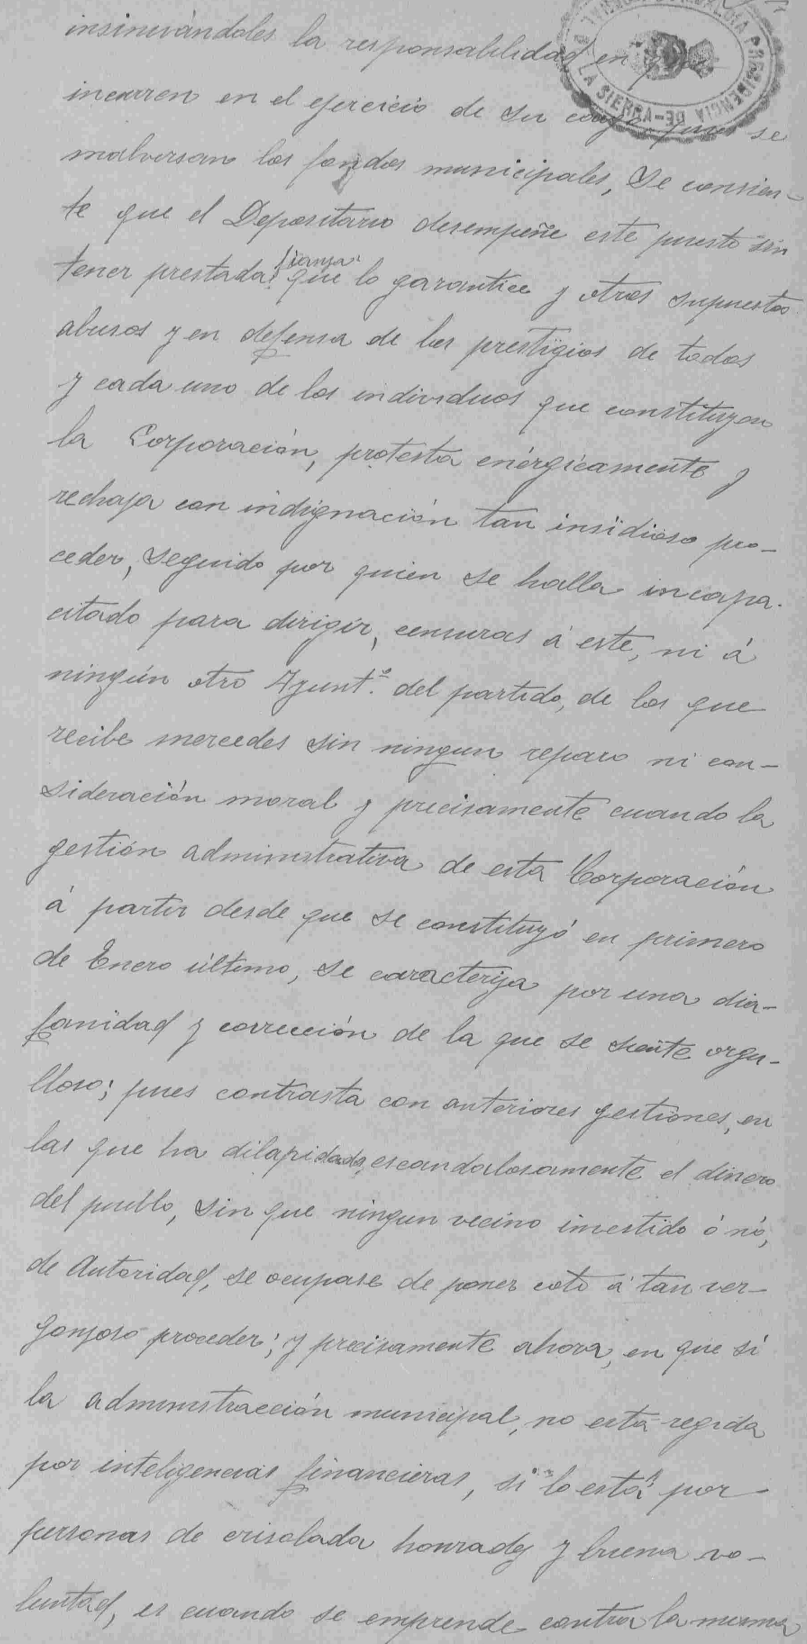 insinuándoles la responsabilidad en que
incurren en el ejercicio de su cargo, pues se
malversan los fondos municipales, se consien-
te que el Depositario desempeñe este puesto sin
tener prestada fianza que lo garantice y otros supuestos
abusos y en defensa de los prestigios de todos
y cada uno de los individuos que constituyen
la Corporación, protesta enérgicamente y
rechaza con indignación tan insidioso pro-
ceder, seguido por quien se halla incapa-
citado para dirigir, censuras á este, ni á
ningún otro Ayunt.º del partido, de los que
recibe mercedes sin ningun reparo ni con-
sideración moral y precisamente cuando la
gestión administrativa de esta Corporación
á partir desde que se constituyó en primero
de Enero último, se caracteriza por una dia-
fanidad y corrección de la que se siente orgu-
lloso; pues contrasta con anteriores gestiones, en
las que ha dilapidado escandalosamente el dinero
del pueblo, sin que ningun vecino investido ó nó,
de Autoridad, se ocupase de poner coto á tan ver-
gonzoso proceder; y precisamente ahora, en que si
la administracción municipal, no está regida
por inteligencias financieras, si lo está por
personas de crisolada honradez y buena vo-
luntad, es cuando se emprende contra la misma
PRESIDENCIA
LA SIERRA-DE-